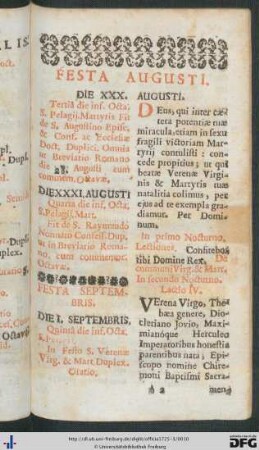 FESTA AUGUSTI.
DIE XXX. AUGUSTI.
Tertia die inf. Octa.
S. Pelagij, Martyris Fit
de S. Augustino Episc.
& Conf. ac Ecclesiæ
Doct. Duplici. Omnia
ut Breviario Romano
die Augusti cum
commem. Octavæ.
DIE XXXI. AUGUSTI
Quarta die inf. Octa.
S. Pelagij, Mart.
Fit de S. Raymundo
Nonnato Confess. Dup.
ut in Breviario Roma-
no, cum commemor.
Octavæ.
FESTA SEPTEM-
BRIS.
DIE I. SEPTEMBRIS.
Quinta die inf. Octa.
S. Pelagij.
In Festo S. Verenæ
Virg. & Mart. Duplex.
Oratio.
DEus, qui inter cæ-
tera potentiæ tuæ
miracula, etiam in sexu
fragili victoriam Mar-
tyrij contulisti: con-
cede propitius; ut qui
beatæ Verenæ Virgi-
nis & Martyris tuæ
natalitia colimus, per
ejus ad te exempla gra-
diamur. Per Domi-
num.
In primo Nocturno.
Lectiones. Confitebor
tibi Domine Rex. De
communi Virg. & Mart.
In secundo Nocturno.
Lectio IV.
VErena Virgo, The-
bæa genere, Dio-
cletiano Jovio, Maxi-
mianóque Herculeo
Imperatoribus honestis
parentibus nata; Epi-
scopo nomine Chire-
moni Baptismi Sacra-
a 2 men-
http://dl.ub.uni-freiburg.de/diglit/officia1725-3/0010
© Universitätsbibliothek Freiburg
gefördert durch die
DFG